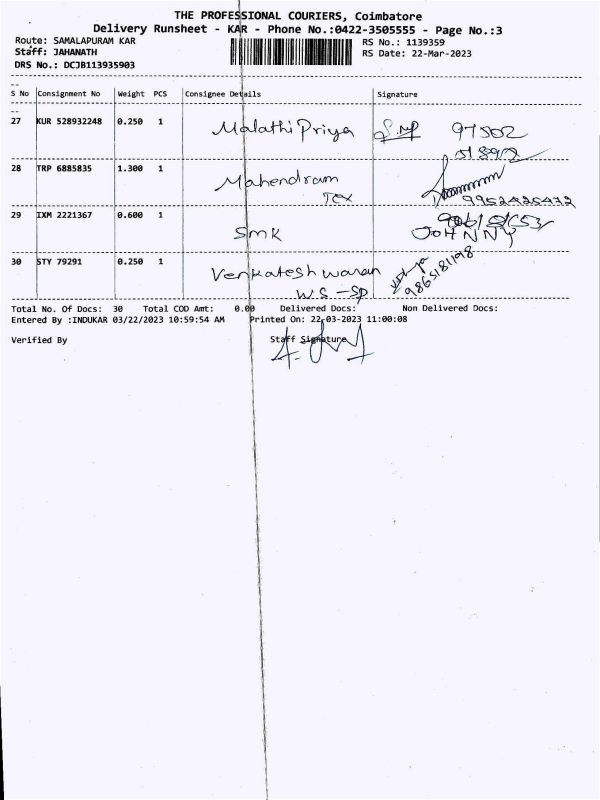 THE PROFESSIONAL COURIERS, Coimbatore
Delivery Runsheet - KAR - Phone No.:0422-3505555 - Page No.:3
Route: SAMALAPURAM KAR
RS No.: 1139359
Staff: JAHANATH
RS Date: 22-Mar-2023
DRS No.: DCJB113935903
S No Consignment No Weight PCS Consignee Details Signature
27 KUR 528932248 0.250 1 Malathi Priya 97502
28 TRP 6885835 1.300 1 Mahendram
Tex 9952426472
29 IXM 2221367 0.600 1 SMK JOHNNY
30 STY 79291 0.250 1 Venkatesh waran
WS-SP 9865181198
Total No. Of Docs: 30 Total COD Amt: 0.00 Delivered Docs: Non Delivered Docs:
Entered By :INDUKAR 03/22/2023 10:59:54 AM Printed On: 22-03-2023 11:00:08
Verified By Staff Signature